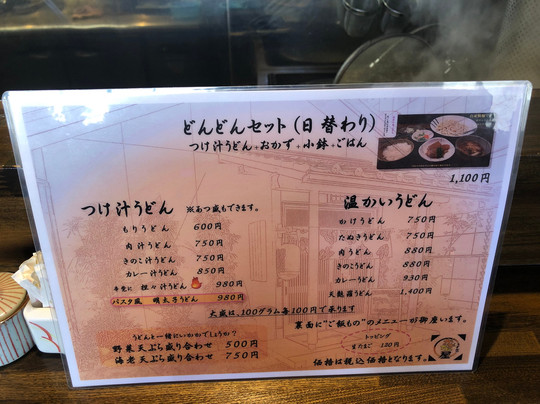 どんどんセット(日替わり)
つけ汁うどん+おかず+小鉢+ごはん
1,100円
つけ汁うどん ※あつ盛もできます。
もりうどん 600円
肉汁うどん 750円
きのこ汁うどん 750円
カレー汁うどん 850円
辛党に 担々汁うどん 980円
パスタ風 明太子うどん 980円
温かいうどん
かけうどん 750円
たぬきうどん 750円
肉うどん 880円
きのこうどん 880円
カレーうどん 930円
天麩羅うどん 1,400円
大盛は、100グラム毎100円で承ります
裏面に"ご飯もの"のメニューが御座います。
うどんと一緒にいかかでしょうか?
野菜天ぷら盛り合わせ 500円
海老天ぷら盛り合わせ 750円
トッピング
生たまご 100円
価格は税込価格となります。